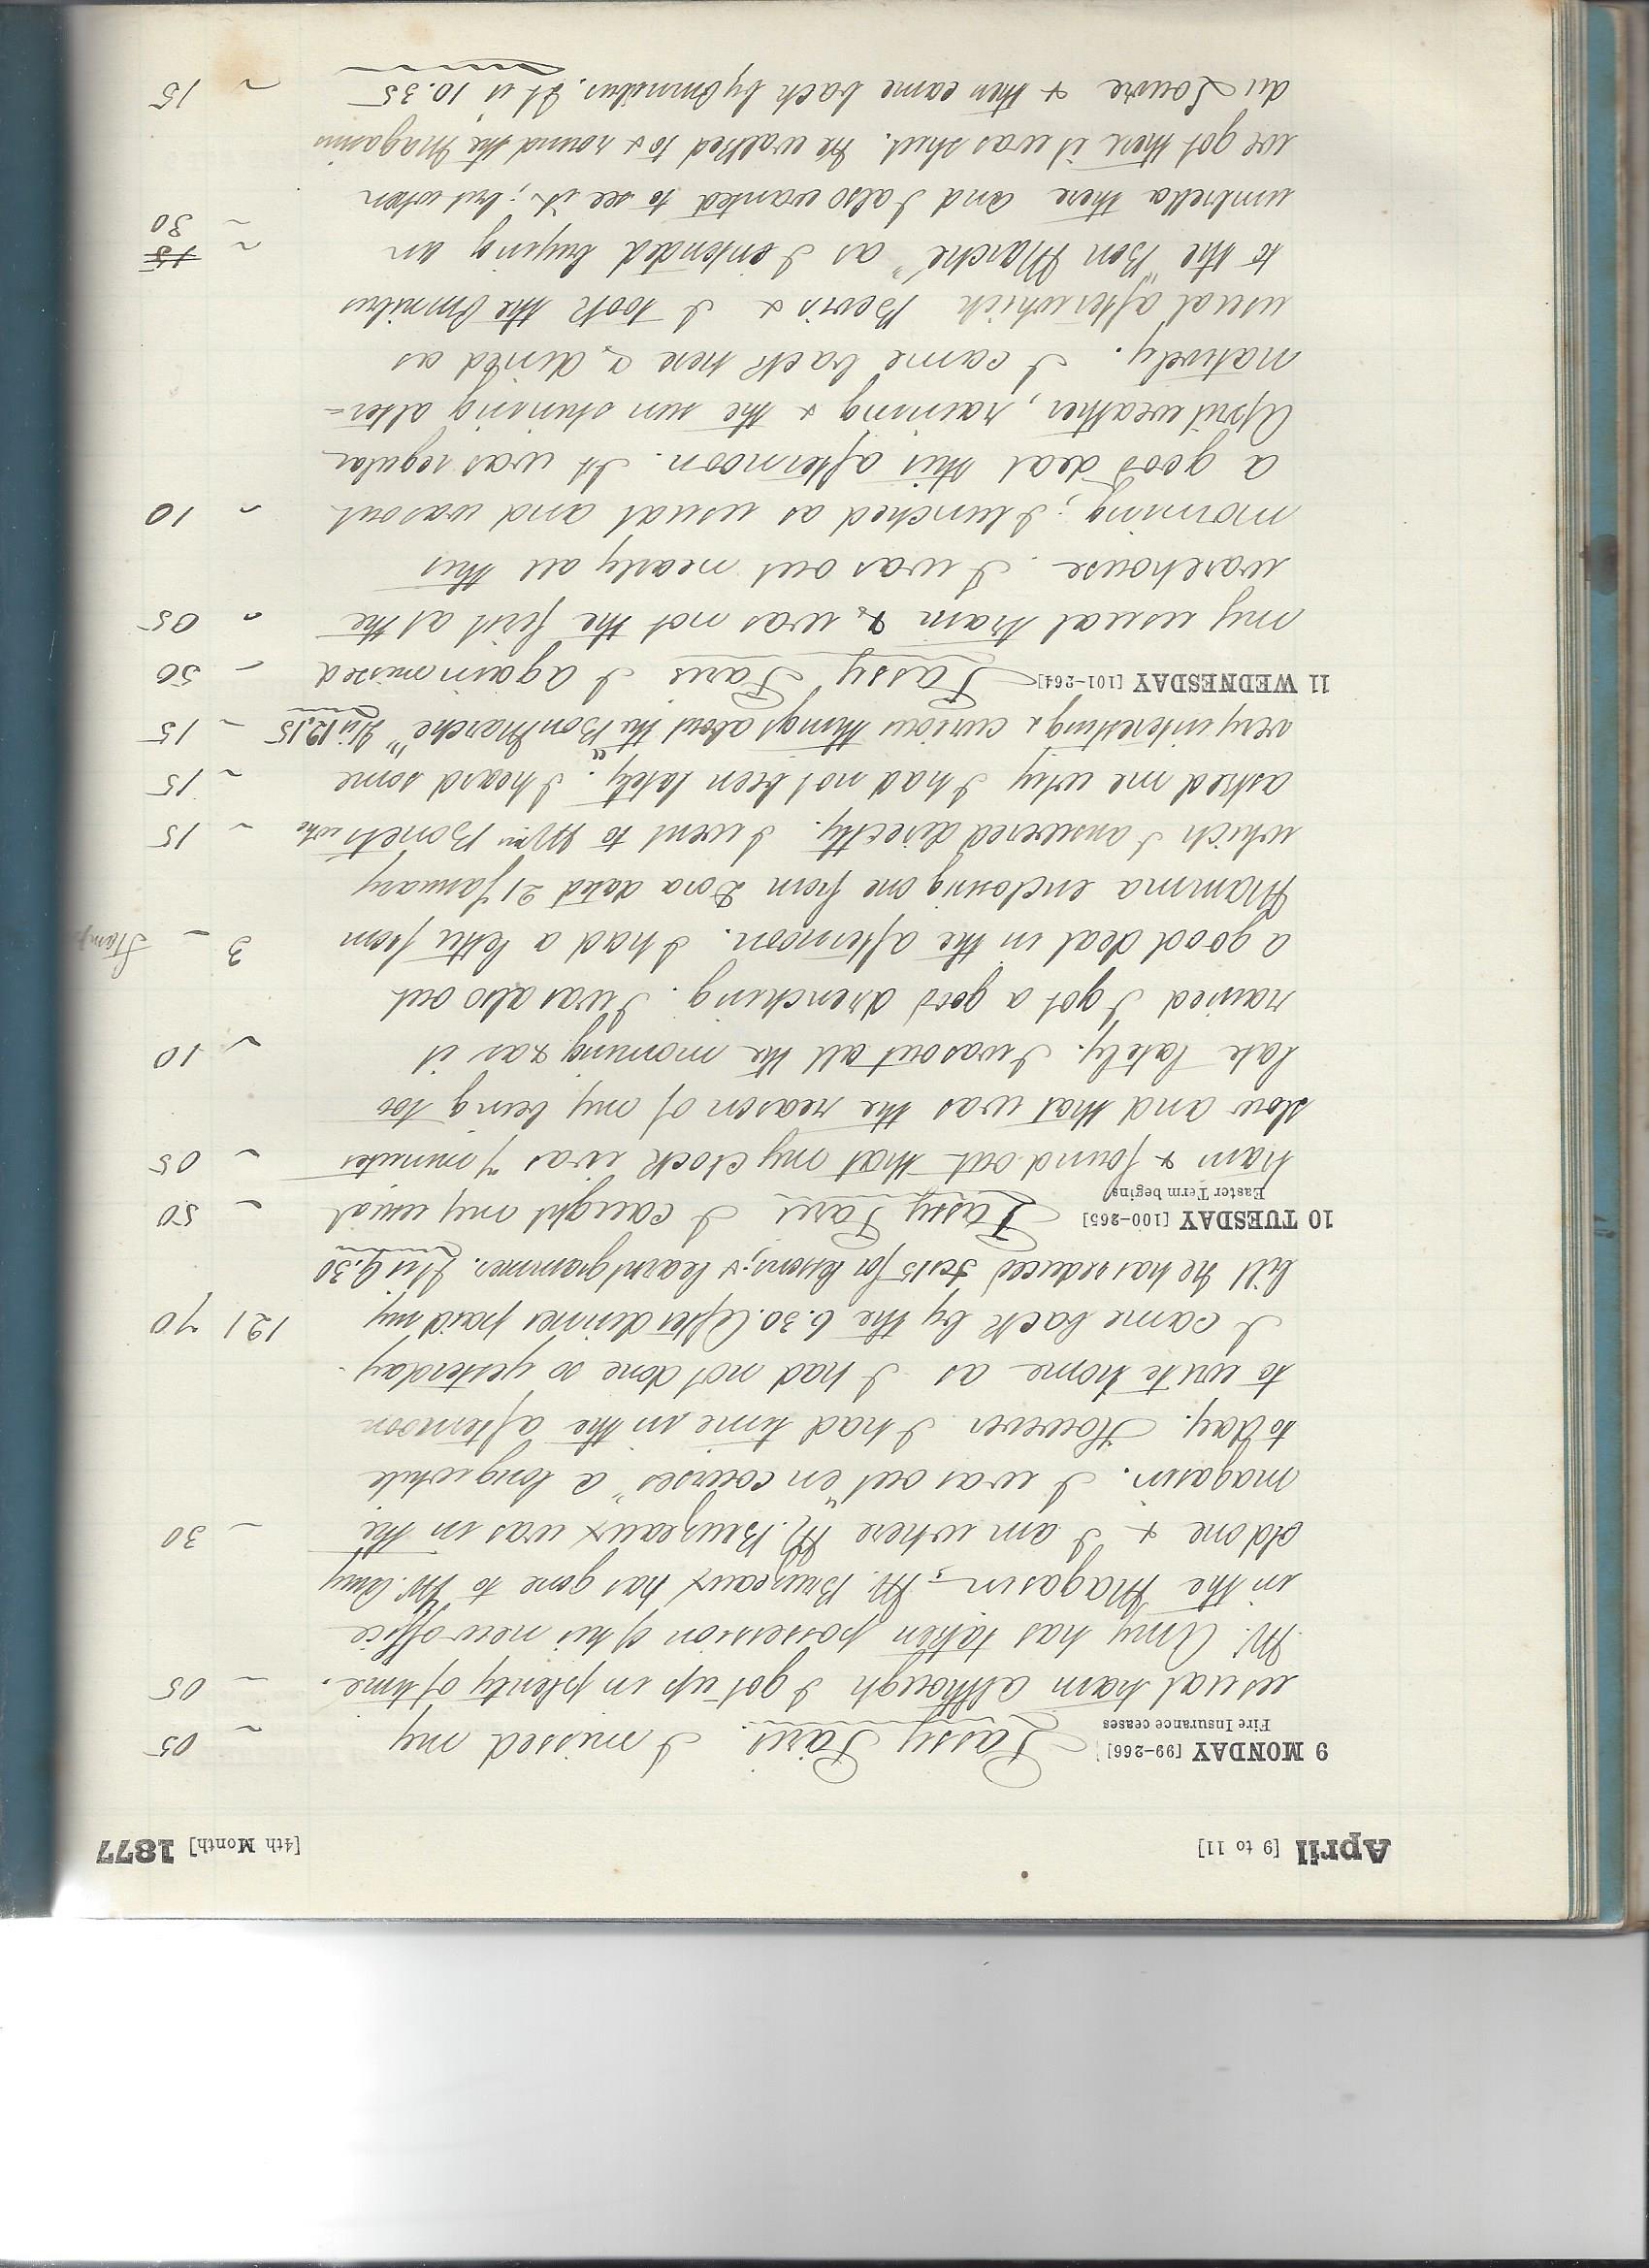 April [9 to 11] [4th Month] 1877
9 MONDAY [99-266] Passy Paris. I missed my ~ 05
Fire Insurance ceases
usual tram although I got up in plenty of time. ~ 05
Mr. Amy has taken possession of his new office
in the Magasin, Mr. Bruzeaux has gone to Mr. Amy
old one & I am where Mr. Bruzeaux was in the ~ 30
magasin. I was out "en courses" a long while
to day. However I had time in the afternoon
to write home as I had not done so yesterday.
I came back by the 6.30. After dinner paid my 121 70
bill he has reduced fcs15 for lessons; & learnt grammer. It is 9.30
10 TUESDAY [100-265] Passy Paris I caught my usual ~ 50
Easter Term begins
tram & found out that my clock was 7 minutes ~ 05
slow and that was the reason of my being too
late lately. I was out all the morning & as it ~ 10
rained I got a good drenching. I was also out
a good deal in the afternoon. I had a letter from 3 ~ Stamps
Mamma enclosing one from Dora dated 21 January
which I answered directly. I went to Mrs Bonets who ~ 15
asked me why I had not been lately. I heard some ~ 15
very interesting & curious things about the "Bon Marche" It is 12.15 ~ 15
11 WEDNESDAY [101-264] Passy Paris I again missed ~ 50
my usual tram & was not the first at the ~ 05
warehouse. I was out nearly all this
morning; I lunched as usual and was out ~ 10
a good deal this afternoon. It was regular
April weather, raining & the sun shining alter-
natively. I came back here & dined as
usual after which Bevis & I took the Omnibus
to the "Bon Marche" as I intended buying an ~ 15
umbrella there and I also wanted to see it; but when ~ 30
we got there it was shut. We walked to & round the Magasins
du Louvre & then came back by Omnibus. It is 10.35 ~ 15